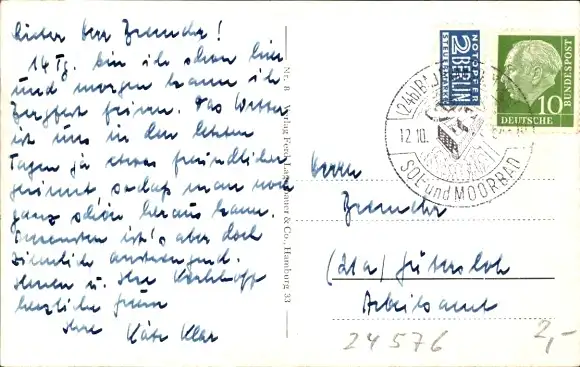 Lieber Herr
14 Tg. bin ich schon hier
und morgen kann ich
Bergfest feiern. Das Wetter
ist uns in den letzten
Tagen ja etwas freundlicher
gesinnt sodaß man noch
ganz schön heraus kann.
Ansonsten ist's aber doch
ziemlich anstrengend.
Ihnen u.
herzliche Grüße
Ihre Käte Klar
Nr. 8 Verlag Ferd. & Co., Hamburg 33
NOTOPFER
2 BERLIN
STEUERMARKE
DEUTSCHE
BUNDESPOST
10
(24b) BA
12.10.
SOL- und MOORBAD
Herrn
(21a) Gütersloh
Arbeitsamt
24576
2,-